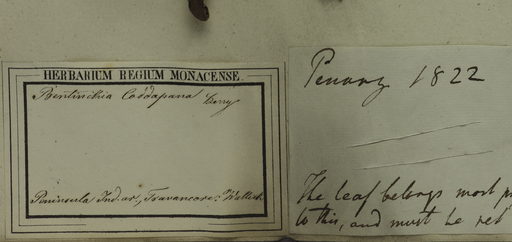 HERBARIUM REGIUM MONACENSE.
Bentinckia Coddapana Berry
Peninsula Ind. or., Travancore: Wallich
Penang 1822
The leaf belongs most pr
to this, and must be ret